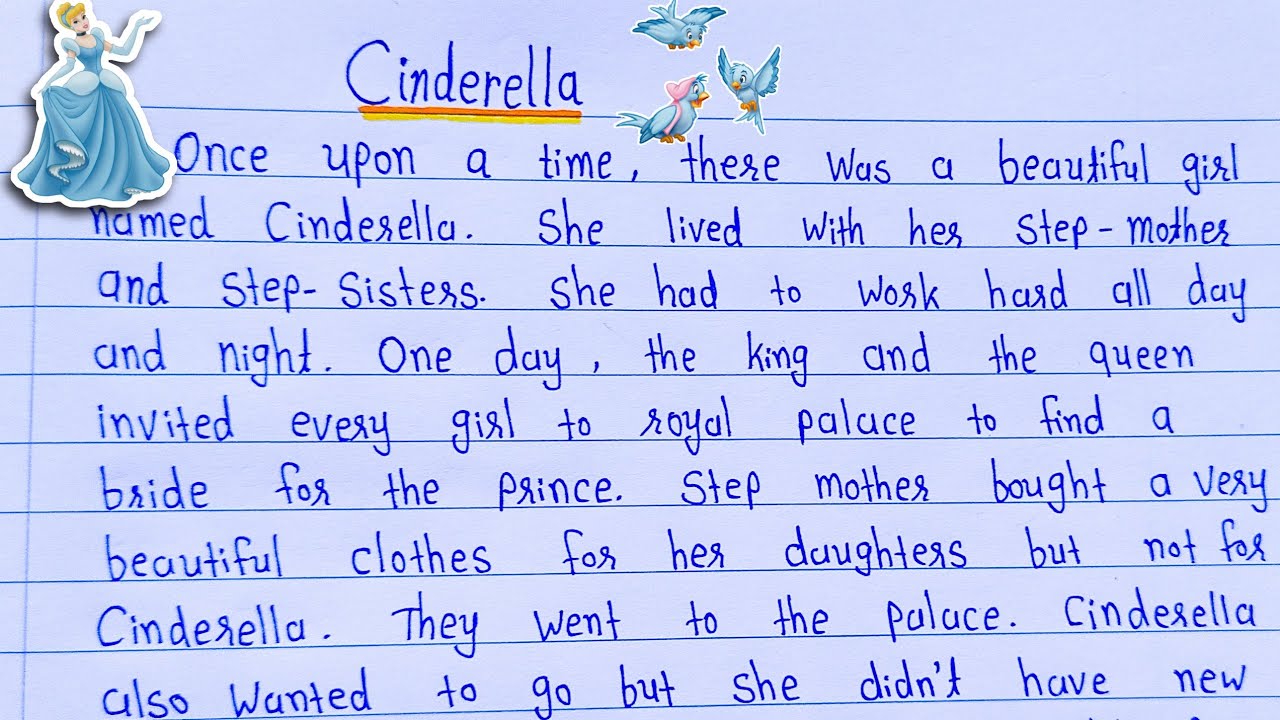 Cinderella
Once upon a time, there was a beautiful girl
named Cinderella. She lived with her step-mother
and step-sisters. She had to work hard all day
and night. One day, the king and the queen
invited every girl to royal palace to find a
bride for the prince. Step mother bought a very
beautiful clothes for her daughters but not for
Cinderella. They went to the palace. Cinderella
also wanted to go but she didn't have new